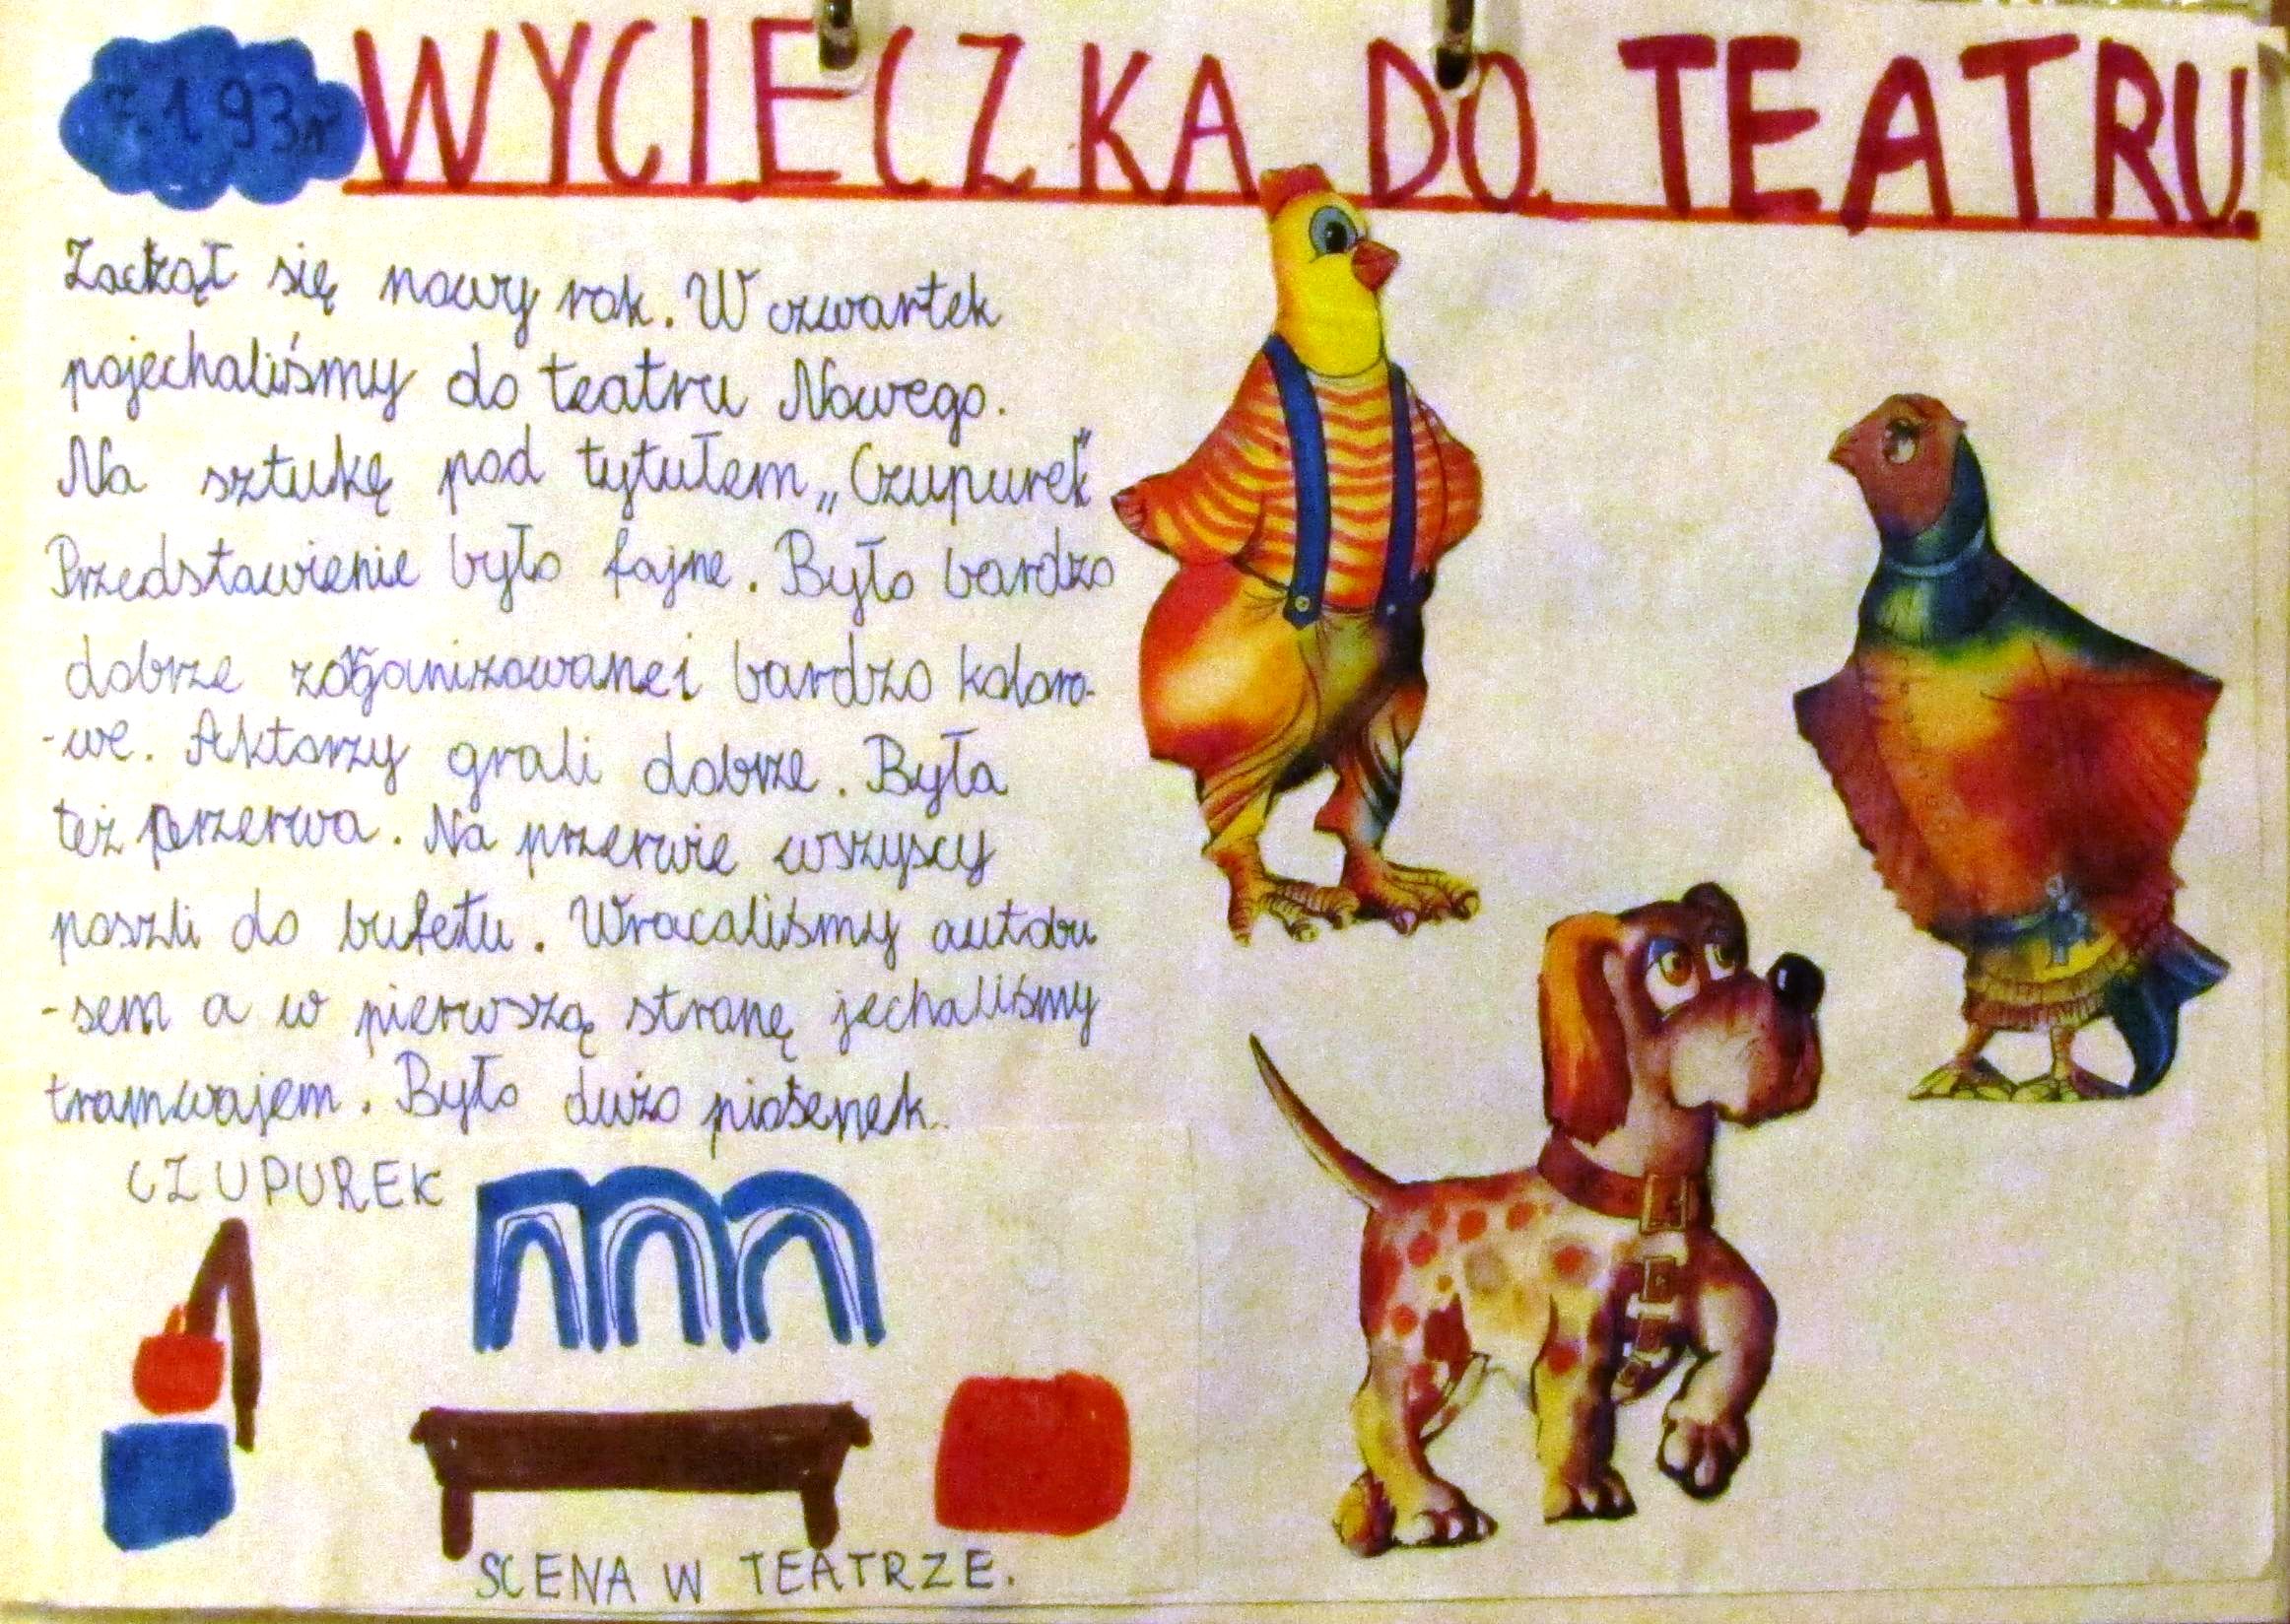 7.1 93r
WYCIECZKA DO TEATRU.
Zaczął się nowy rok. W czwartek
pojechaliśmy do teatru Nowego.
Na sztukę pod tytułem „Czupurek"
Przedstawienie było fajne. Było bardzo
dobrze zorganizowane i bardzo koloro-
-we. Aktorzy grali dobrze. Była
też przerwa. Na przerwie wszyscy
poszli do bufetu. Wracaliśmy autobu
-sem a w pierwszą stronę jechaliśmy
tramwajem. Było dużo piosenek.
CZUPUREK
SCENA W TEATRZE.